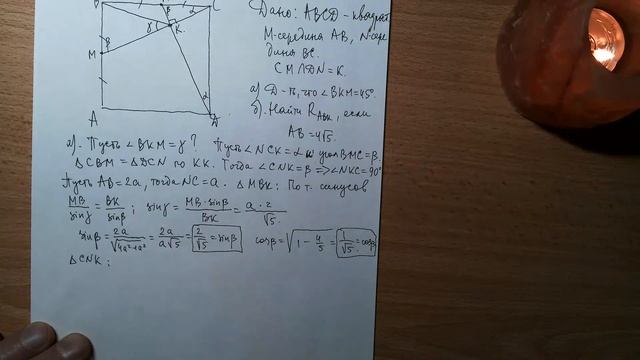 Дано: ABCD - квадрат
M-середина AB, N-сере-
дина BC.
CM∩DN=K.
а) Д-ть, что ∠BKM=45°.
б) Найти R_ABK, если
AB=4√5.
B
C
K
M
β
γ
α
A
Д
а). Пусть ∠BKM=γ? Пусть ∠NCK=α и угол BMC=β.
△CBM=△DCN по КК. Тогда ∠CNK=β ⇒ ∠NKC=90°
Пусть AB=2a, тогда NC=a. △MBK: По т. синусов
MB/sinγ = BK/sinβ; sinγ = MB·sinβ/BK = a·2/√5.
sinβ = 2a/√(4a²+a²) = 2a/a√5 = 2/√5 = sinβ cosβ = √(1-4/5) = 1/√5 = cosβ
△CNK: